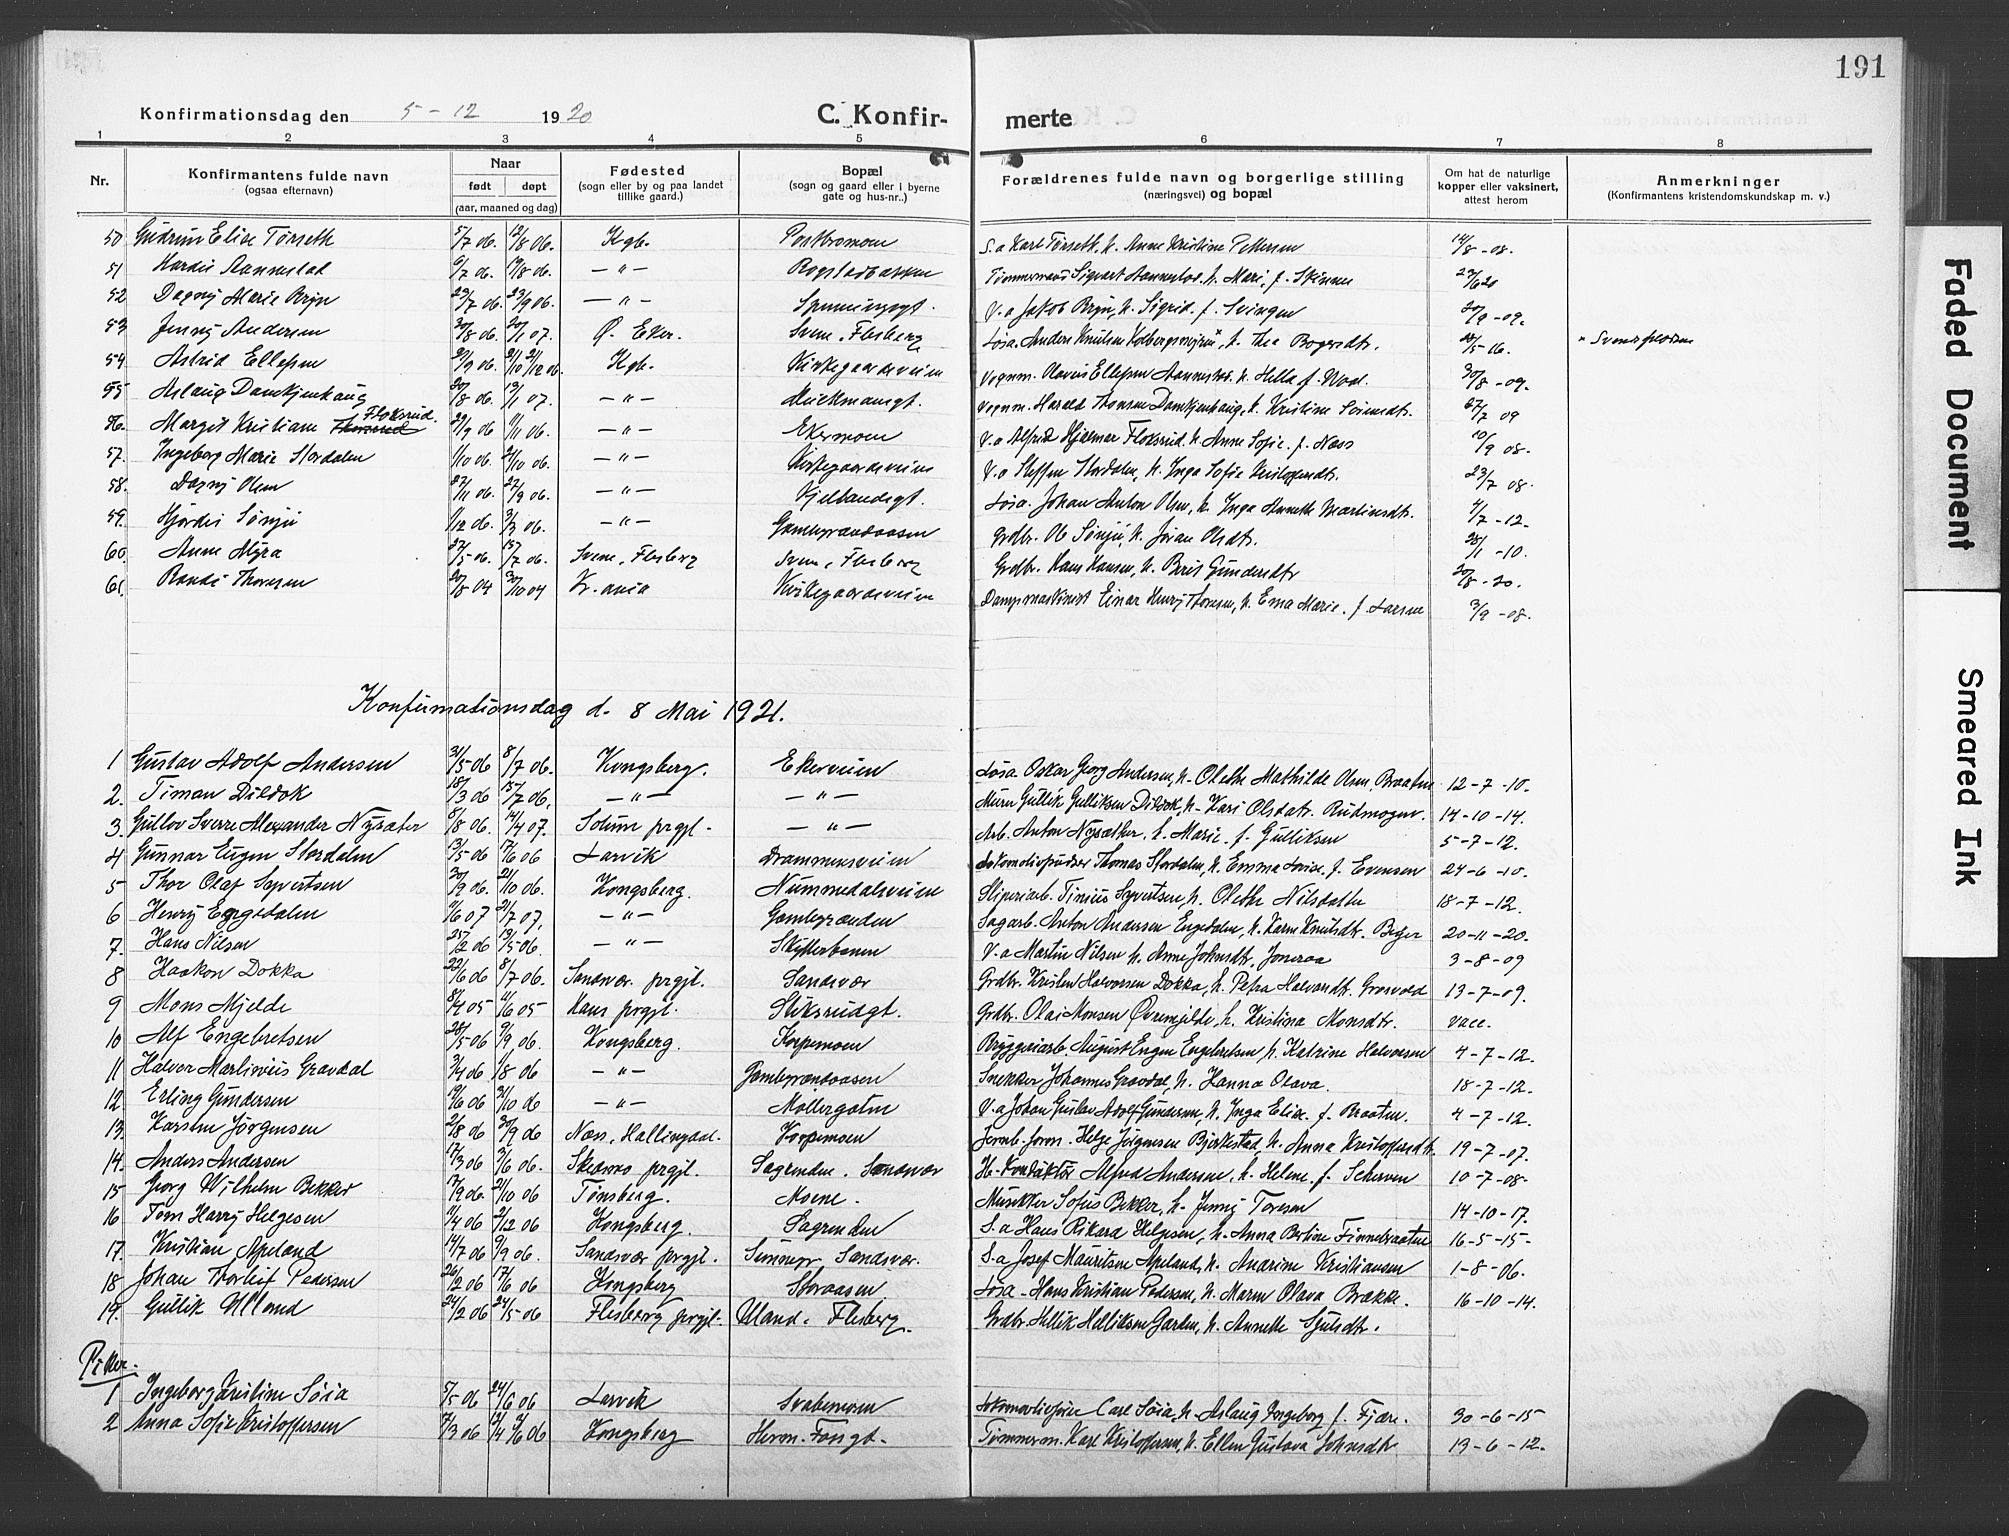 191
Konfirmationsdag den 5-12 1920 C. Konfir- merte
1 2 3 4 5 6 7 8
Nr. Konfirmantens fulde navn (ogsaa efternavn) Naar født døpt (aar, maaned og dag) Fødested (sogn eller by og paa landet tillike gaard.) Bopæl (sogn og gaard eller i byerne gate og hus-nr..) Forældrenes fulde navn og borgerlige stilling (næringsvei) og bopæl Om hat de naturlige kopper eller vaksinert, attest herom Anmerkninger (Konfirmantens kristendomskundskap m. v.)
50 Gudrun Elise Tørseth 5/7 06. 12/8 06. Kgb. Postbromoen S.a Karl Tørseth, h. Anne Kristine Pettersen 14/8 -08.
51 Hardis Aannestad 6/7 06. 19/8 06. —"— Rogstadbakken Tømmermand Sigvart Aannestad, h. Marie, f. Skinnes 23/6 20
52 Dagny Marie Bryn 22/7 06. 23/9 06. —"— V.a Jakob Bryn, h. Sigrid. f. Svingen 20/9 -09.
53 Jenny Andersen 30/8 06. 20/1 07. Ø. Eker. Svene, Flesberg Løsa. Anders Knutsen Kolbergsmyren, h. Thea Bogersdtr. /5 -16. Svenseplassen
54 Astrid Ellefsen 21/9 06. 21/10 21/12 06. Kgb. Kirkegaardsveien Vognm. Olavus Ellefsen Aannestad, h. Hella f. Moa. 30/8 -09.
55 Aslaug Damkjenhaug 20/8 06. 13/1 07. —"— Muckmansgt. Vognm. Harald Thorsen Damkjenhaug, h. Kristine Svensdtr. 27/7 09
56. Margit Kristiane Floksrud. 22/9 06 1/11 06. —"— Ekermoen V.a Alfred Hjalmar Floksrud, h. Anne Sofie. f. Næss 10/9 08.
57. Ingeborg Marie Stordalen 1/10 06. 21/10 06. —"— Kirkegaardsveien V.a Steffen Stordalen, h. Inga Sofie Kristoffersdtr. 23/7 08.
58. Dagny Olsen 27/11 06. 27/9 06. —"— Hjeltandsgt. Løsa. Johan Anton Olsen, h. Inga Annette Martinsdtr. 4/7 -12.
59. Hjørdis Sønju 1/12 06. 3/3 06. —"— Gamlegrændaasen Grdbr. Ole Sønju, h. Jøran Olsdtr. 28/1 -10.
60. Anne Myra 27/5 -06. 15/7 06. Svene, Flesberg Svene, Flesberg Grdbr. Hans Hansen, h. Berit Gundersdtr 20/8 -20.
61. Randi Thoresen 20/8 04 30/10 04 Kr. ania Kirkegaardsveien Dampmaskinist Einar Henry Thoresen, h. Ema Marie. f. Larsen 3/9 -08.
Konfirmationsdag d. 8 Mai 1921.
1 Gustav Adolf Andersen 31/5 06 8/7 06. Kongsberg. Ekerveien Løsa Oskar Georg Andersen, h. Olette Mathilde Olsen Braaten 12-7-10.
2. Timan Dildok 18/3 06 15/7 06. —"— —"— Murer Gullik Gulliksen Dildok, h. Kari Olsdatr. Rudmogen. 14-10-14.
3. Gullov Sverre Alexander Nysæter 8/8 06. 14/4 07. Solum prgjl. —"— Arb. Anton Nysæther, h. Marie. f. Gulliksen 5-7-12.
4 Gunnar Eugen Stordalen 13/5 -06 17/6 06 Larvik Drammensveien Lokomotivpudser Thomas Stordalen, h. Emma Lovise, f. Evensen 24-6-10.
5 Thor Olaf Syvertsen 30/9 06. 21/10 06. Kongsberg. Nummedalsveien Sliperiarb. Tinius Syvertsen, h. Olette Nilsdatter 18-7-12.
6 Henry Engedalen 1/6 07 21/7 07. —"— Gamlegrænden Sagarb. Anton Andersen Engedalen, h. Karen Knutsdtr. Berger 20-11-20.
7. Hans Nilsen 25/12 06 13/5 -06. —"— Skytterbanen V.a Martin Nilsen h. Anne Johnsdtr. Jonsraa 3-8-09
8 Haakon Dokka 22/6 06 8/7 06. Sandsvær prgjl. Sandsvær Grdbr. Kristen Halvorsen Dokka, h. Petra Halvorsdtr. Grosvold 13-7-09.
9 Mons Mjelde 8/4 05 11/6 05 Haus prgjl. Sliksrudgt. Grdbr. Olai Monsen Øvremjelde, h. Kristina Monsdtr. vacc.
10 Alf Engebretsen 20/5 -06 9/9 06. Kongsberg. Korpemoen Bryggeriarb. August Eugen Engebretsen h. Katrine Halvorsen 4-7-12.
11 Halvor Martinius Gravdal 3/4 06 1/8 06 —"— Gamlegrændaasen Snekker Johannes Gravdal, h. Hanna Olava. 18-7-12.
12 Erling Gundersen 12/6 06 21/10 06 —"— Møllergaten V.a Johan Gustav Adolf Gundersen, h. Inga Elise f. Braaten. 4-7-12.
13. Karsten Jørgensen 2/8 06 30/9 06 Næss, Hallingdal. Korpemoen Jernb. form. Helge Jørgensen Bjerkestad, h. Anna Kristoffersdtr. 19-7-07.
14. Anders Andersen 17/3 06 3/6 06. Skedsmo prgjl. Sagrenden, Sandsvær H-Konduktør Alfred Andersen, h. Helene f. Scherven 10-7-08.
15 Georg Wilhelm Bekker 17/9 06. 21/10 06 Tønsberg. Moene. Murekter Sofus Bekker, h. Jenny Toresen 14-10-17.
16 Tom Harry Helgesen 11/4 06 2/12 06 Kongsberg. Sagrenden S.a Hans Rikard Helgesen, h. Anna Bertine Finnebraaten 16-5-15-
17. Kristian Apeland 14/7 06 9/9 06. Sandsvær prgjl. Sandsvær. S.a Josef Mauritsen Apeland, h. Andrine Kristiansen 1-8-06.
18 Johan Thorleif Pedersen 26/2 06 17/6 06 Kongsberg Storaasen Løsa - Hans Kristian Pedersen, h. Maren Olava Brække. 16-10-14.
19. Gullik Ulland 24/2 06 24/5 -06 Flesberg prgjl. Uland. Flesberg. Grdbr Hellik Helliksen Garden, h. Annette Sjulsdtr.
Piker.
1 Ingeborg Kristine Søia 5/5 06 24/6 06 Larvik Svabemoen Lokomotivfører Carl Søia, h. Aslaug Ingeborg f. Fjære. 30-6-15
2 Anna Sofie Kristoffersen 7/3 06 12/4 4/6 06 Kongsberg Herm. Fossgt. Tømmerm. Karl Kristoffersen, h. Ellen Gustava Johnsdtr 13-6-12.
Faded Document
Smeared Ink